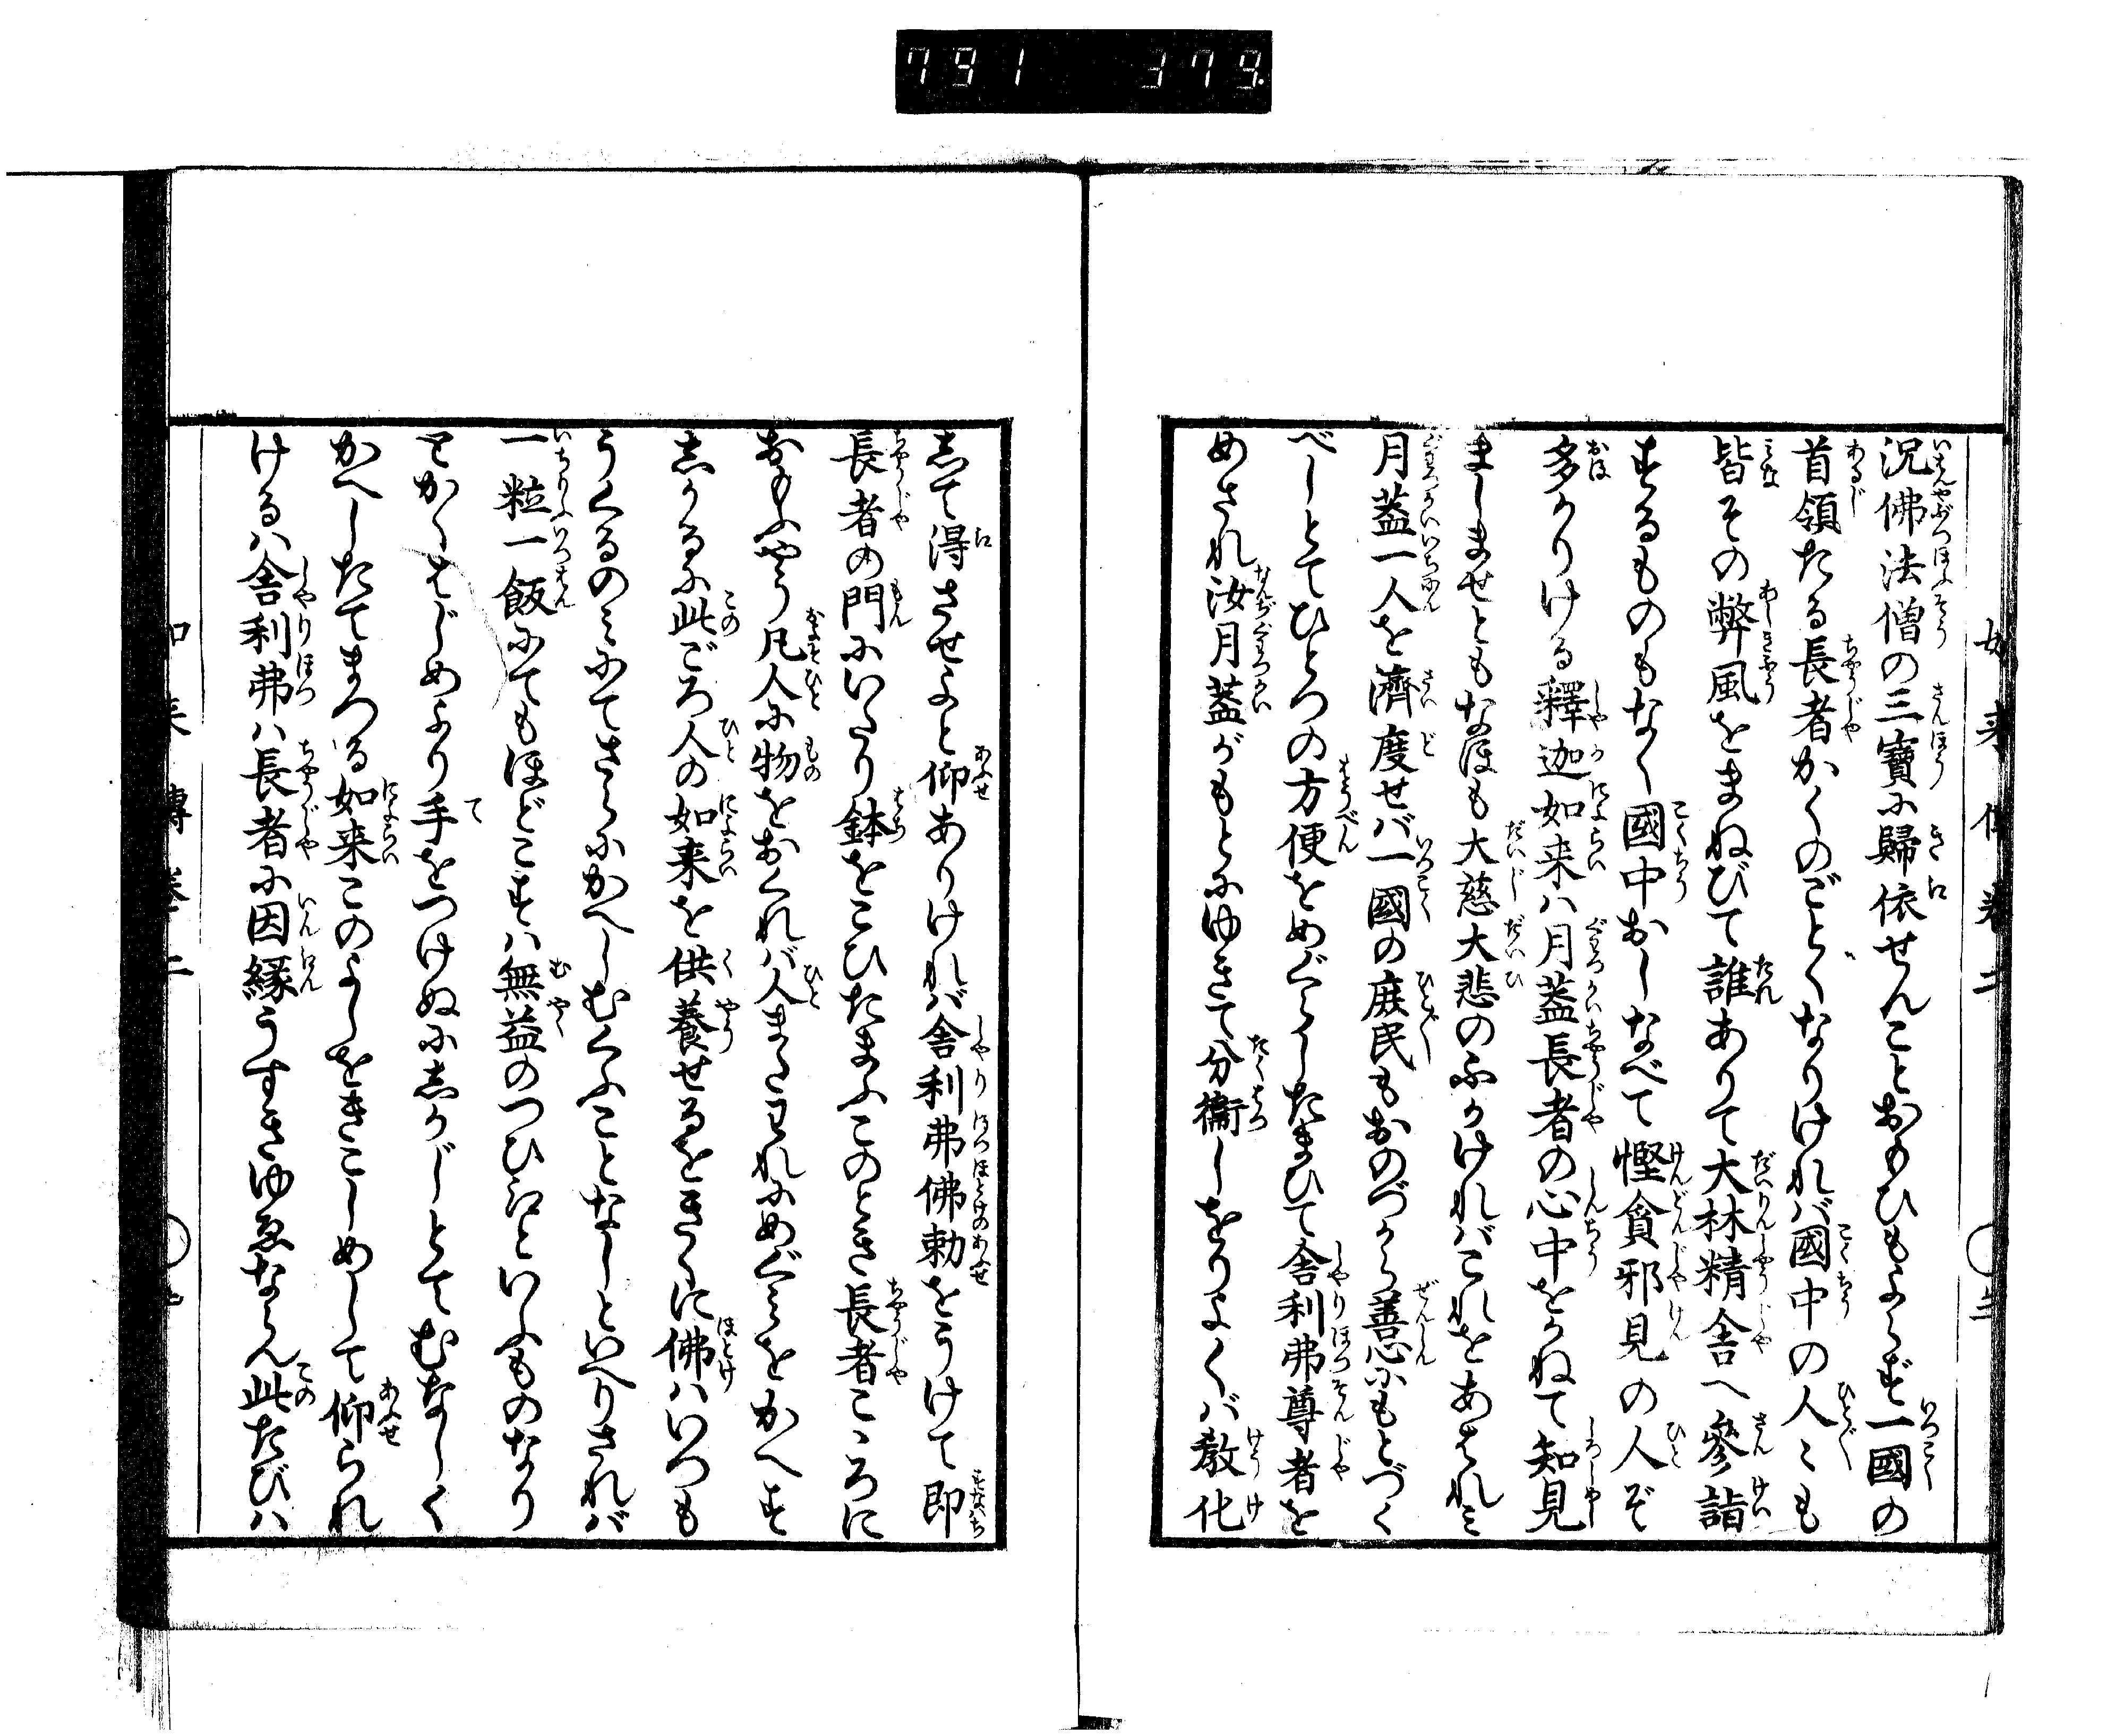 791 379.
況佛法僧の三寳に歸依せんことおもひもよらず一國の
首領たる長者かくのごとくなりければ國中の人〻も
皆その弊風をまねびて誰ありて大林精舎へ參詣
するものもなく國中おしなべて慳貪邪見の人ぞ
多かりける釋迦如来ハ月蓋長者の心中をかねて知見
ましませともなほも大慈大悲のふかければこれをあはれミ
月蓋一人を濟度せバ一國の庶民もおのづから善心にもとづく
べしとてひとつの方便をめぐらしたまひて舎利弗尊者を
めされ汝月蓋がもとにゆきて分衞しをりよくバ教化
して得させよと仰ありければ舎利弗佛勅をうけて即
長者の門にいたり鉢をこひたまふこのとき長者こゝろに
おもふやう凡人に物をおくれバ人またわれにめぐミをかへす
しかるに此ごろ人の如来を供養せるをきくに佛ハいつも
うくるのミにてさらにかへしむくふことなしといへりされバ
一粒一飯にてもほどこすハ無益のつひえといふものなり
とかくはじめより手をつけぬにしかじとてむなしく
かへしたてまつる如来このよしをきこしめして仰られ
けるハ舎利弗ハ長者に因縁うすきゆゑならん此たびハ
如来傳巻二